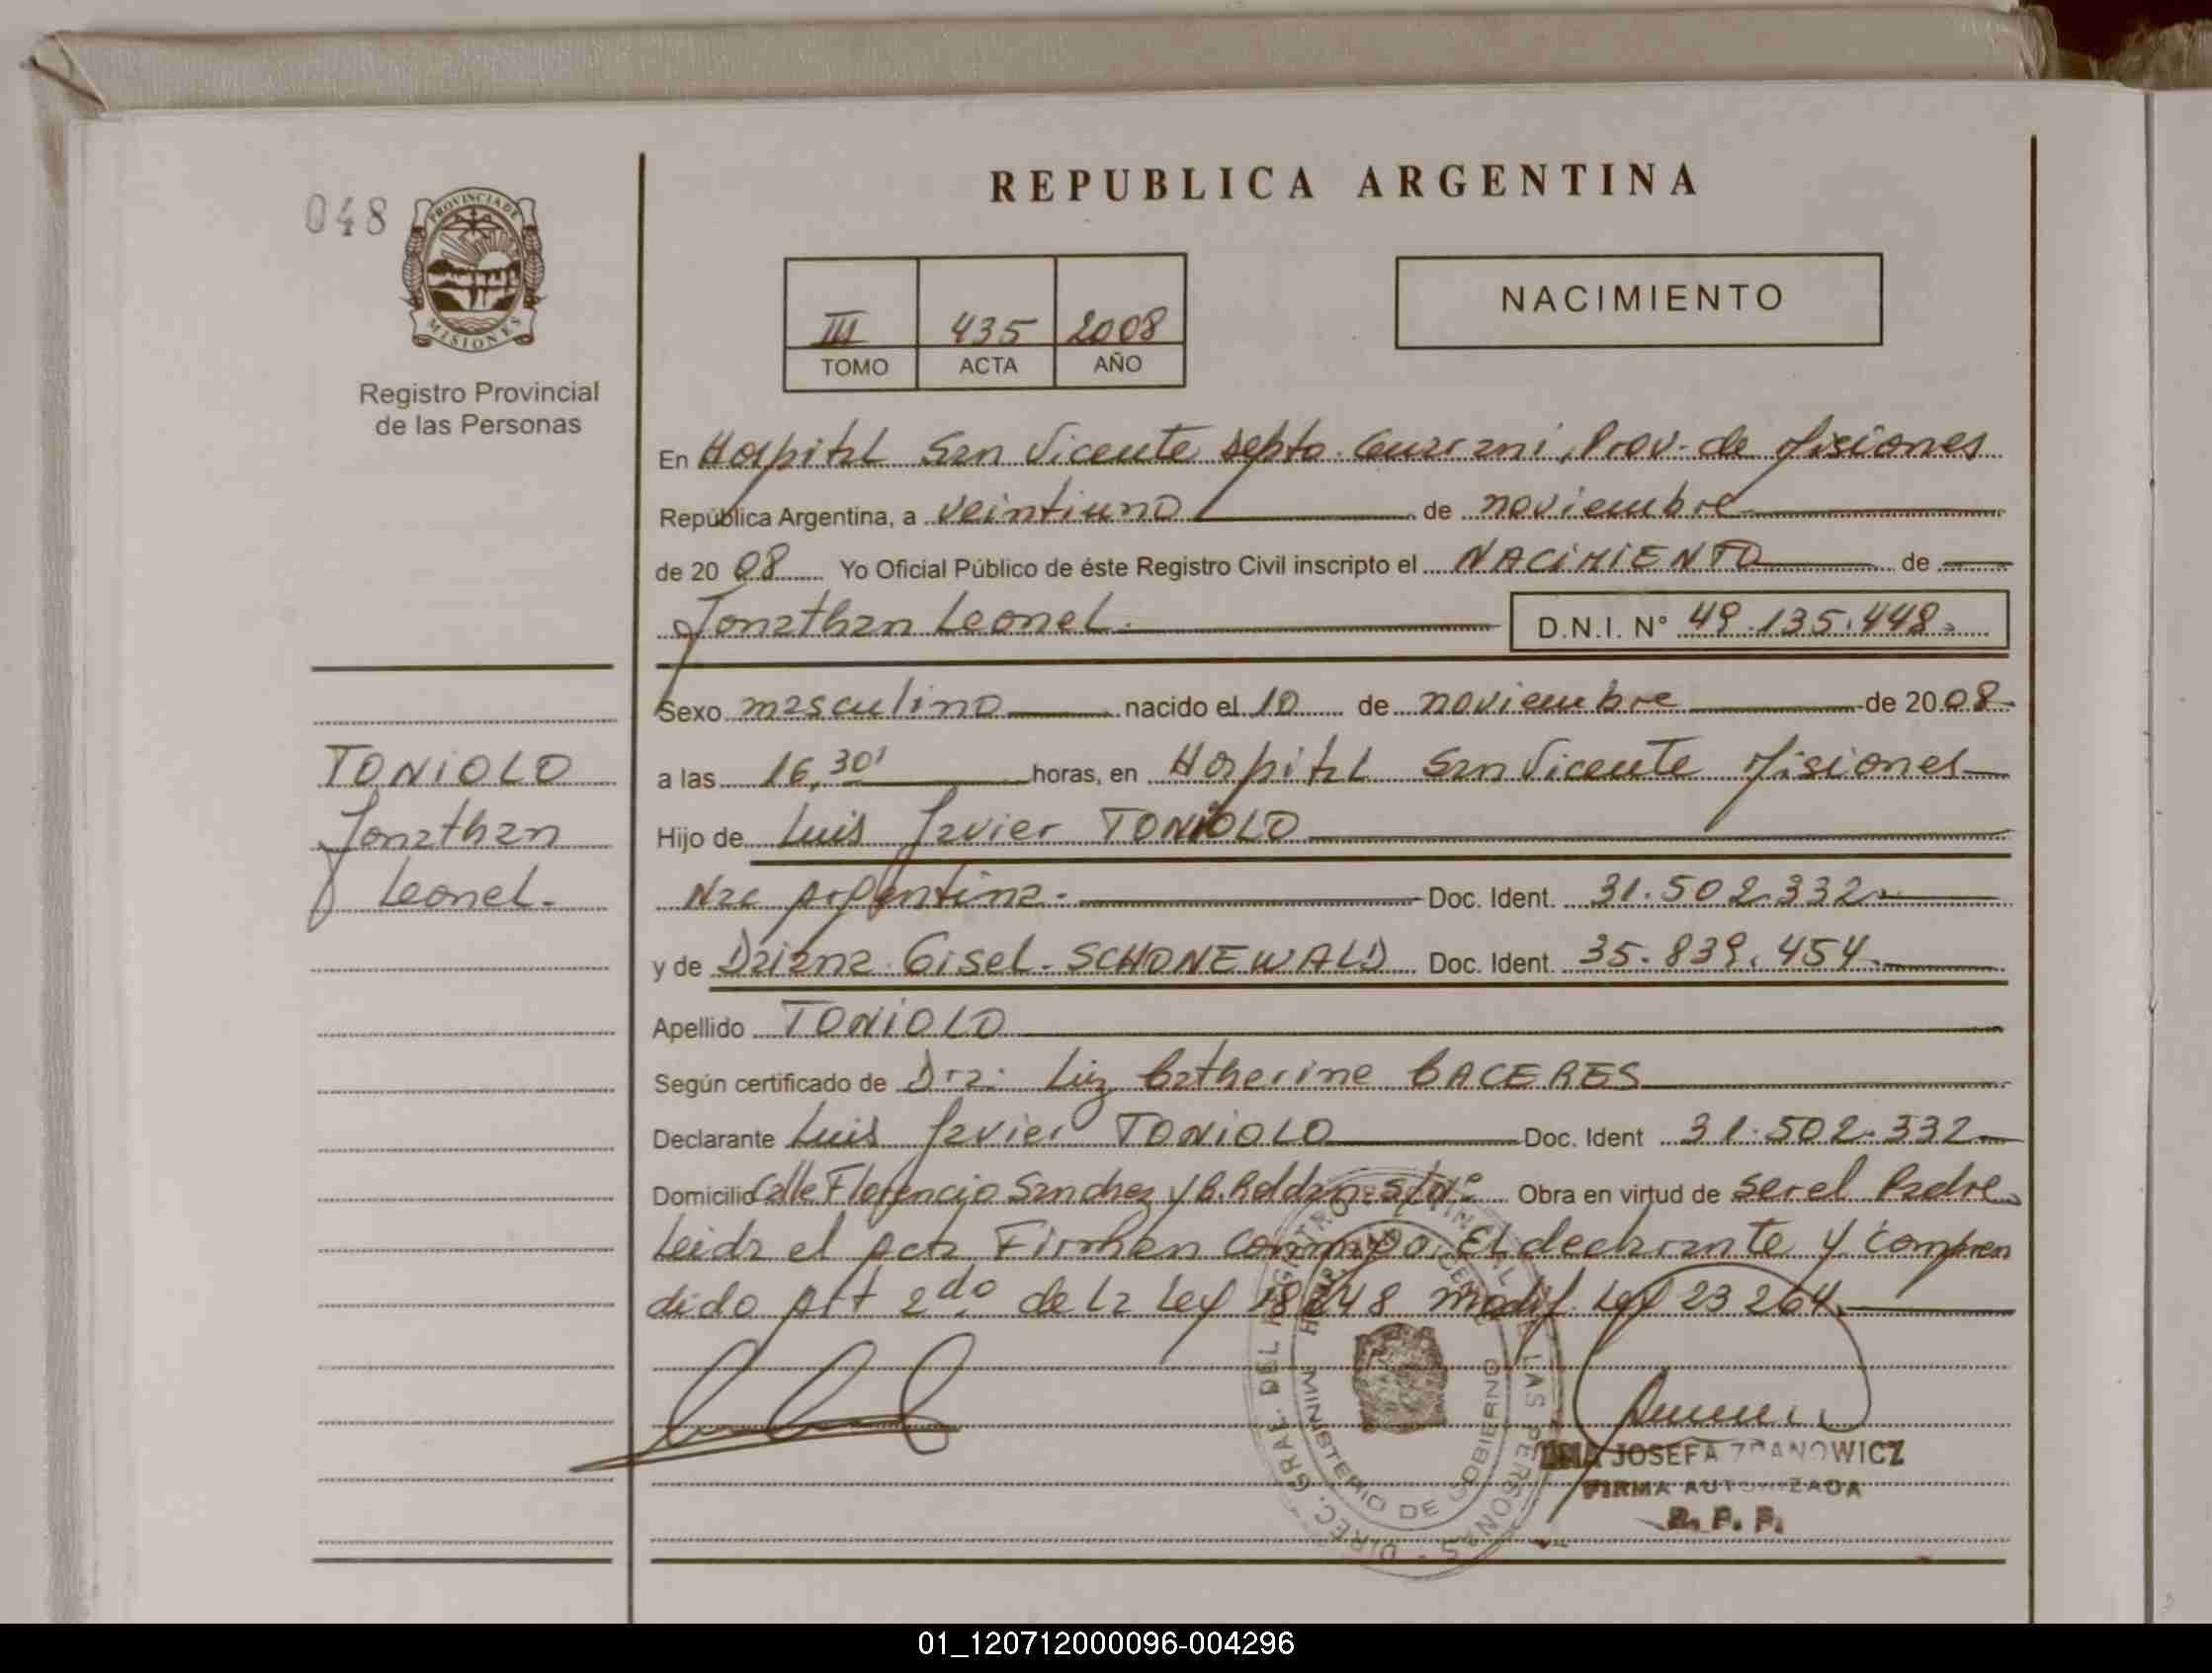 REPUBLICA ARGENTINA
048
PROVINCIA DE
MISIONES
Registro Provincial
de las Personas
III 435 2008
TOMO ACTA AÑO
NACIMIENTO
En Hospital San Vicente Depto. Guarani, Prov. de Misiones
República Argentina, a veintiuno de noviembre
de 2008 Yo Oficial Público de éste Registro Civil inscripto el NACIMIENTO de
Jonathan Leonel. D.N.I. N° 49.135.448.
Sexo masculino nacido el 10 de noviembre de 2008
a las 16,30' horas, en Hospital San Vicente Misiones
Hijo de Luis Javier TONIOLO
Nac Argentina. Doc. Ident. 31.502.332
y de Daiana Gisel. SCHONEWALD Doc. Ident. 35.839.454
Apellido TONIOLO
Según certificado de Dra. Luz Catherine CACERES
Declarante Luis Javier TONIOLO Doc. Ident 31.502.332
Domicilio Calle Florencio Sanchez y B. Roldan Obra en virtud de ser el Padre
Leida el Acta Firman conmigo El declarante y compren
dido Art 2do de la Ley 18248 modif. Ley 23264.
TONIOLO
Jonathan
Leonel.
DIREC. GRAL. DEL REGISTRO PROVINCIAL DE LAS PERSONAS
MINISTERIO DE GOBIERNO
JOSEFA ZDANOWICZ
FIRMA AUTORIZADA
R. P. P.
01_120712000096-004296